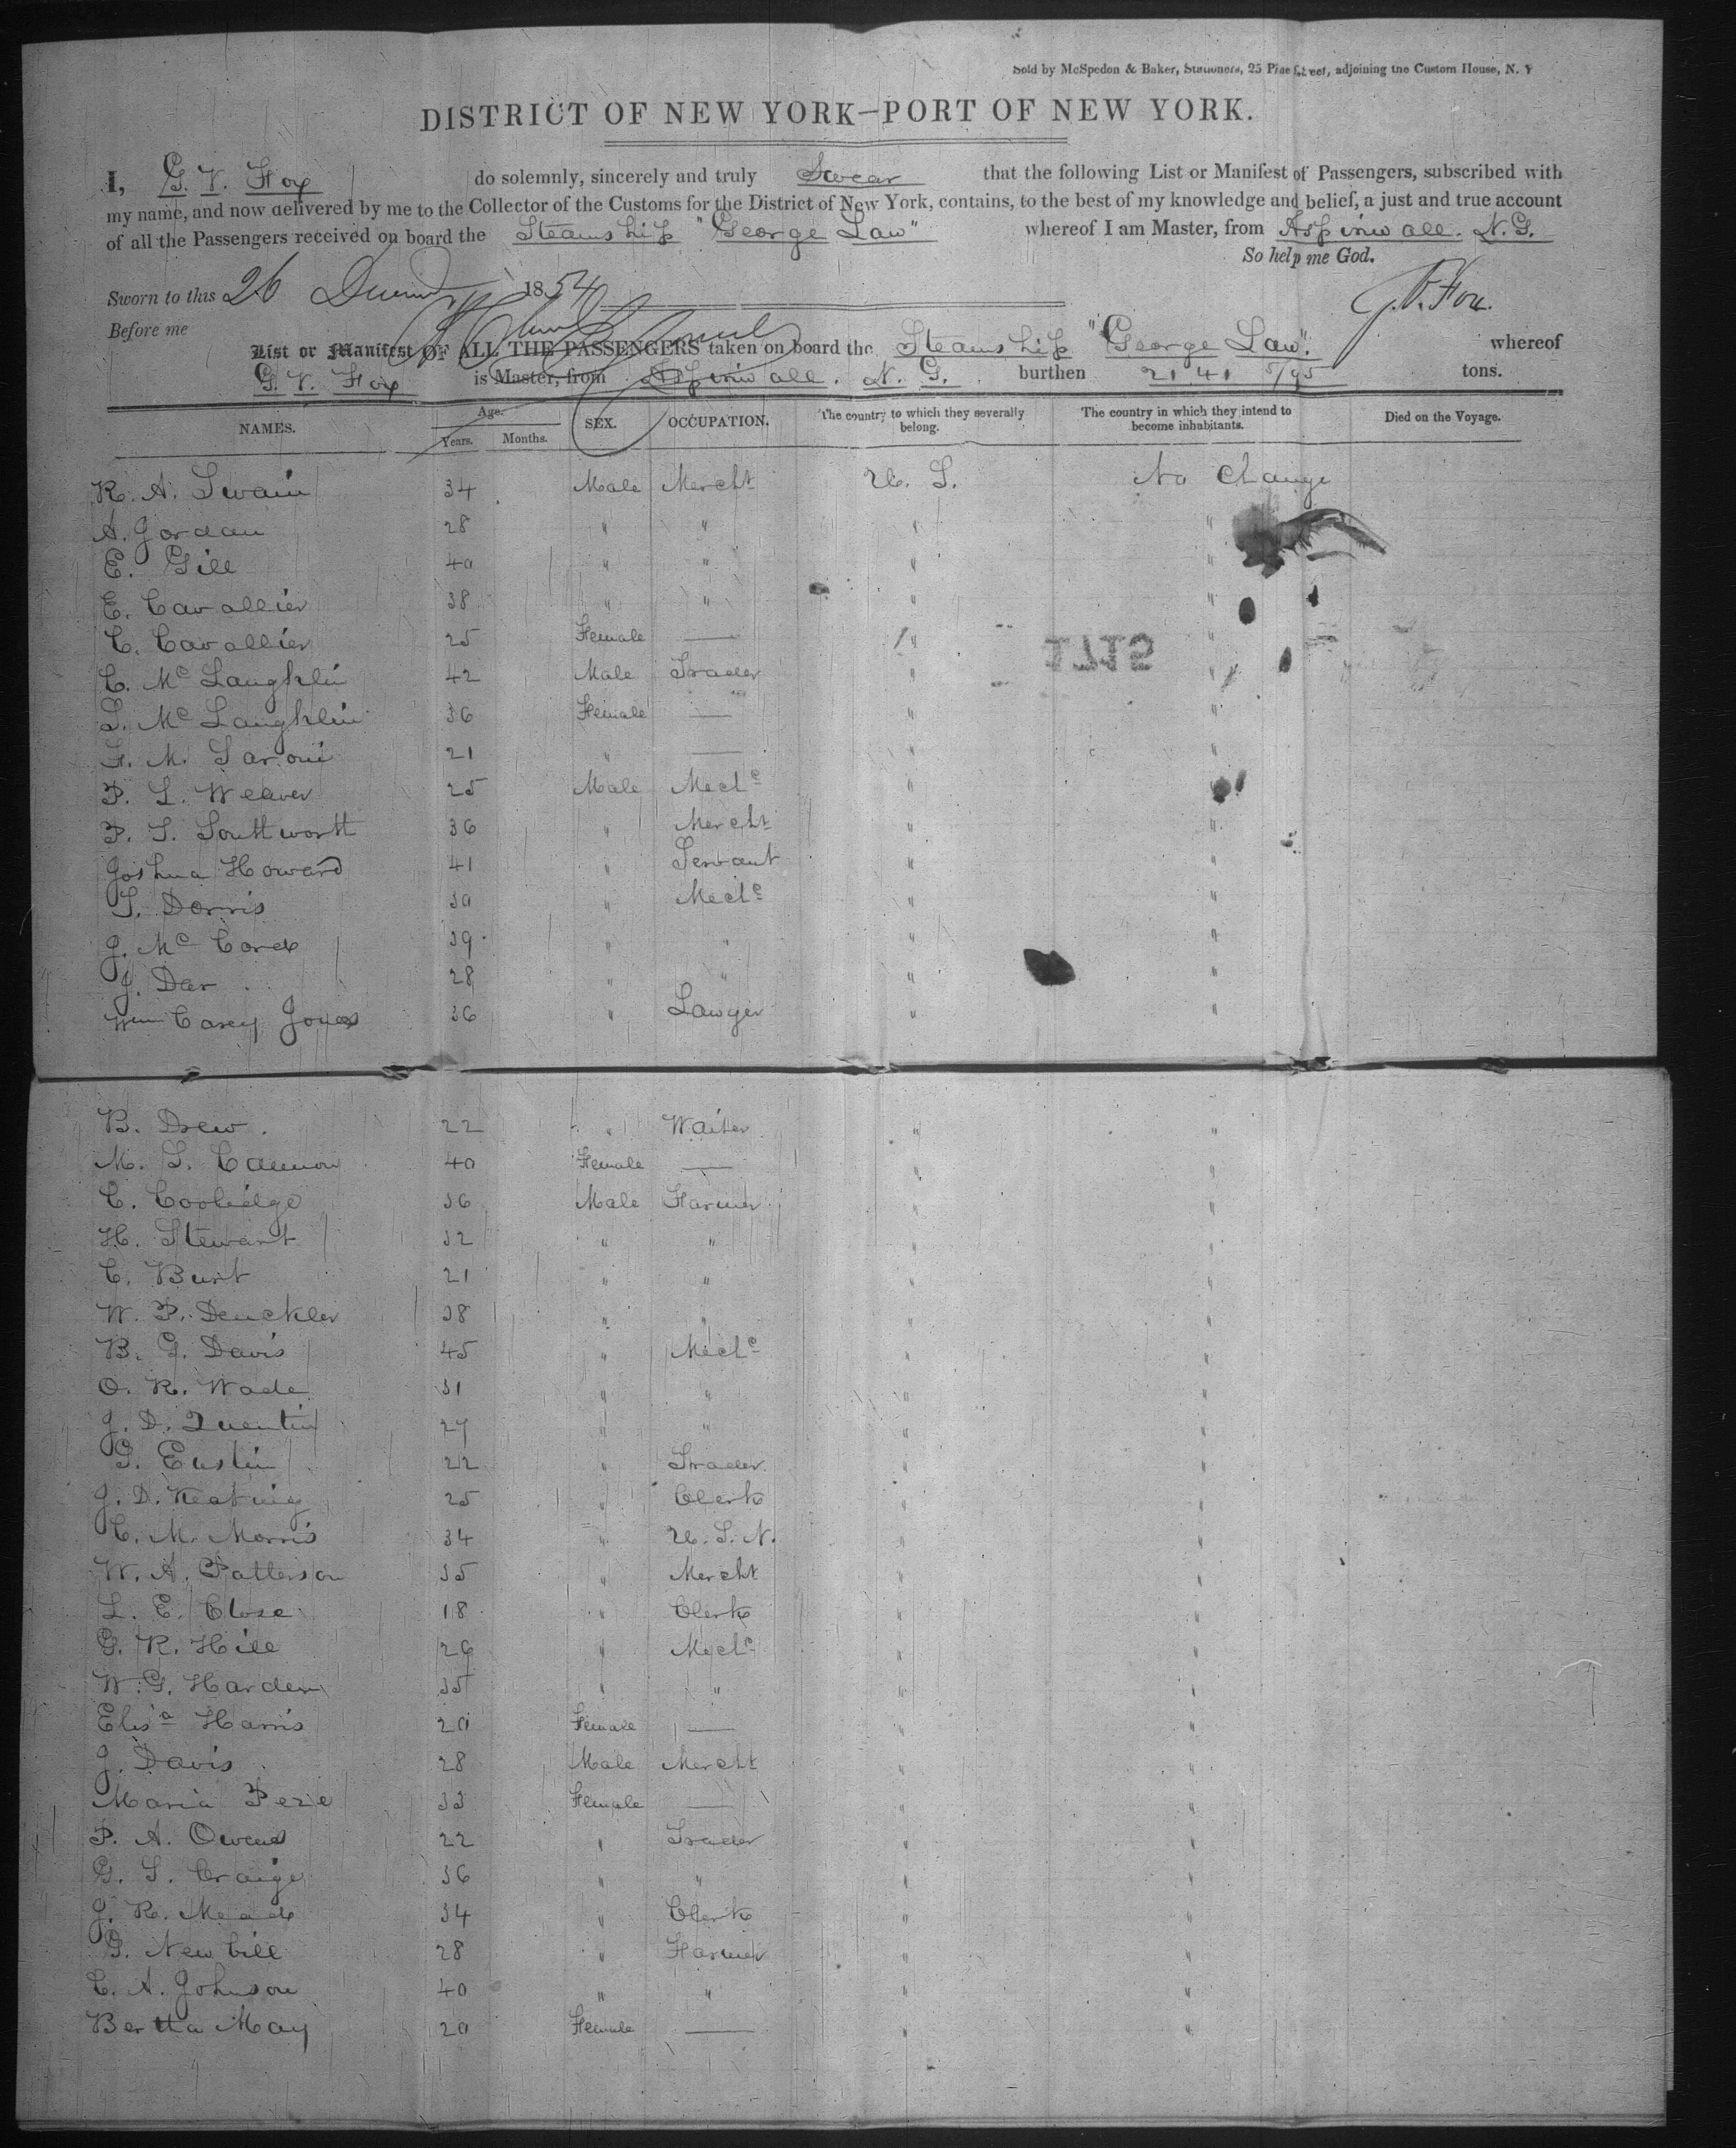 Sold by McSpedon & Baker, Stationers, 25 Pine Street, adjoining the Custom House, N. Y
DISTRICT OF NEW YORK—PORT OF NEW YORK.
I, G. V. Fox do solemnly, sincerely and truly Swear that the following List or Manifest of Passengers, subscribed with
my name, and now delivered by me to the Collector of the Customs for the District of New York, contains, to the best of my knowledge and belief, a just and true account
of all the Passengers received on board the Steamship "George Law" whereof I am Master, from Aspinwall. N. G.
So help me God.
Sworn to this 26 1854 G. V. Fox.
Before me
List or Manifest OF ALL THE PASSENGERS taken on board the Steamship "George Law". whereof
G. V. Fox is Master, from Aspinwall. N. G. burthen 2141 5/95 tons.
NAMES. Age. Years. Months. SEX. OCCUPATION. The country to which they severally belong. The country in which they intend to become inhabitants. Died on the Voyage.
R. A. Swain 34 Male Mercht U. S. No Change
A. Jordan 28 " " " "
E. Gill 40 " " " "
E. Cavallier 38 " " " "
C. Cavallier 25 Female — " "
1715
C. Mc Laughlin 42 Male Trader " "
S. Mc Laughlin 36 Female — " "
M. 21 " — " "
P. L. Weaver 25 Male Mech " "
P. S. Southworth 36 " Mercht " "
Joshua Howard 41 " Servant " "
S. Dorris 30 " Mech " "
J. Mc Cord 39 " " " "
J. Dar 28 " " " "
Wm Carey Jones 36 " Lawyer " "
B. Drew. 22 " Waiter " "
M. S. Cannon 40 Female — " "
C. Coolidge 36 Male Farmer " "
H. Stewart 32 " " " "
C. Burt 21 " " " "
W. P. Denckler 38 " " " "
B. G. Davis 45 " Mech " "
O. R. Wade 31 " " " "
J. D. Quentin 27 " " " "
G. Eustin 22 " Trader " "
J. D. Keating 25 " Clerk " "
C. M. Morris 34 " U. S. N. " "
W. A. Patterson 35 " Mercht " "
L. E. Close 18 " Clerk " "
G. R. Hill 29 " Mech " "
W. G. Harden 35 " " " "
Elisa Harris 20 Female — " "
J. Davis 28 Male Mercht " "
Maria Peze 33 Female — " "
P. A. Owens 22 " Trader " "
G. S. Craige 36 " " " "
J. R. Mead 34 " Clerk " "
G. Newbill 28 " Farmer " "
C. A. Johnson 40 " " " "
Bertha May 20 Female — " "